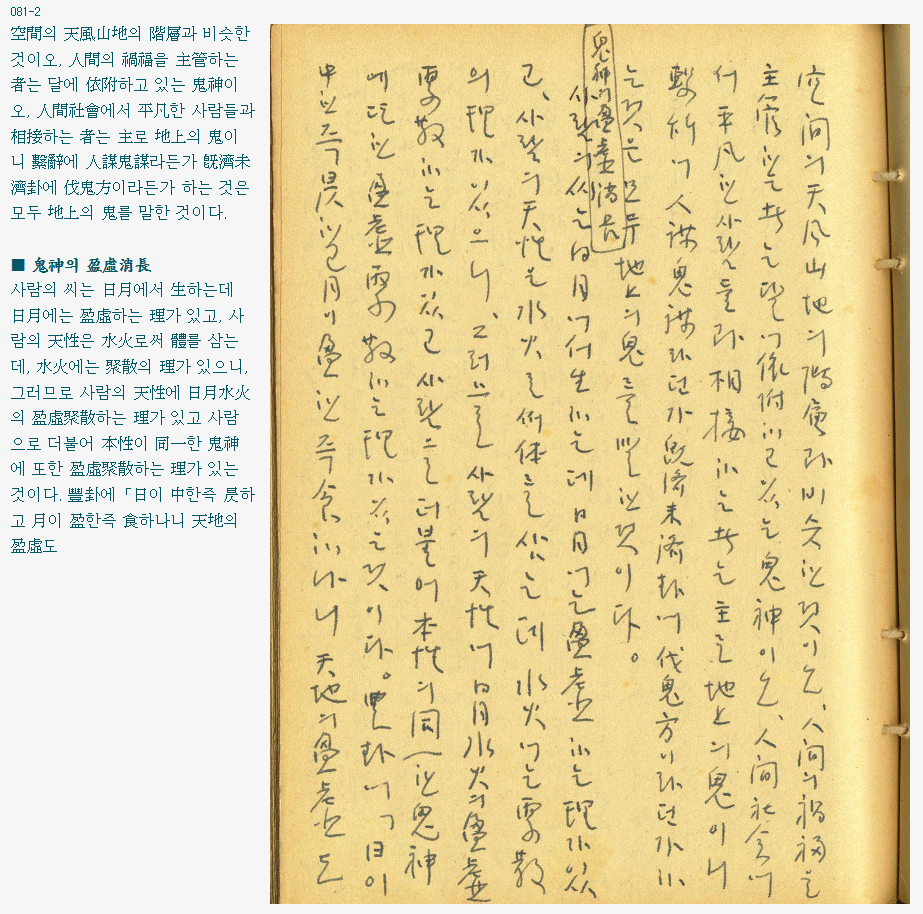 081-2
空間의 天風山地의 階層과 비슷한
것이오, 人間의 禍福을 主管하는
者는 달에 依附하고 있는 鬼神이
오, 人間社會에서 平凡한 사람들과
相接하는 者는 主로 地上의 鬼이
니 繫辭에 人謀鬼謀라든가 旣濟未
濟卦에 伐鬼方이라든가 하는 것은
모두 地上의 鬼를 말한 것이다.
■ 鬼神의 盈虛消長
사람의 씨는 日月에서 生하는데
日月에는 盈虛하는 理가 있고, 사
람의 天性은 水火로써 體를 삼는
데, 水火에는 聚散의 理가 있으니,
그러므로 사람의 天性에 日月水火
의 盈虛聚散하는 理가 있고 사람
으로 더불어 本性이 同一한 鬼神
에 또한 盈虛聚散하는 理가 있는
것이다. 豐卦에 「日이 中한즉 昃하
고 月이 盈한즉 食하나니 天地의
盈虛도
空間의 天風山地의 階層과 비슷한 것이오, 人間의 禍福을
主管하는 者는 달에 依附하고 있는 鬼神이오, 人間社會에
서 平凡한 사람들과 相接하는 者는 主로 地上의 鬼이니
繫辭에 人謀鬼謀라던가 旣濟未濟卦에 伐鬼方이라던가 하
는 것은 모두 地上의 鬼를 말한 것이다。
鬼神의 盈虛消長
사람의 씨는 日月에서 生하는데 日月에는 盈虛하는 理가 있
고, 사람의 天性은 水火로써 体를 삼는데 水火에는 聚散
의 理가 있으니, 그러므로 사람의 天性에 日月水火의 盈虛
聚散하는 理가 있고 사람으로 더불어 本性의 同一한 鬼神
에 또한 盈虛聚散하는 理가 있는 것이다。豐卦에「日이
中한즉 昃하고 月이 盈한즉 食하나니 天地의 盈虛도